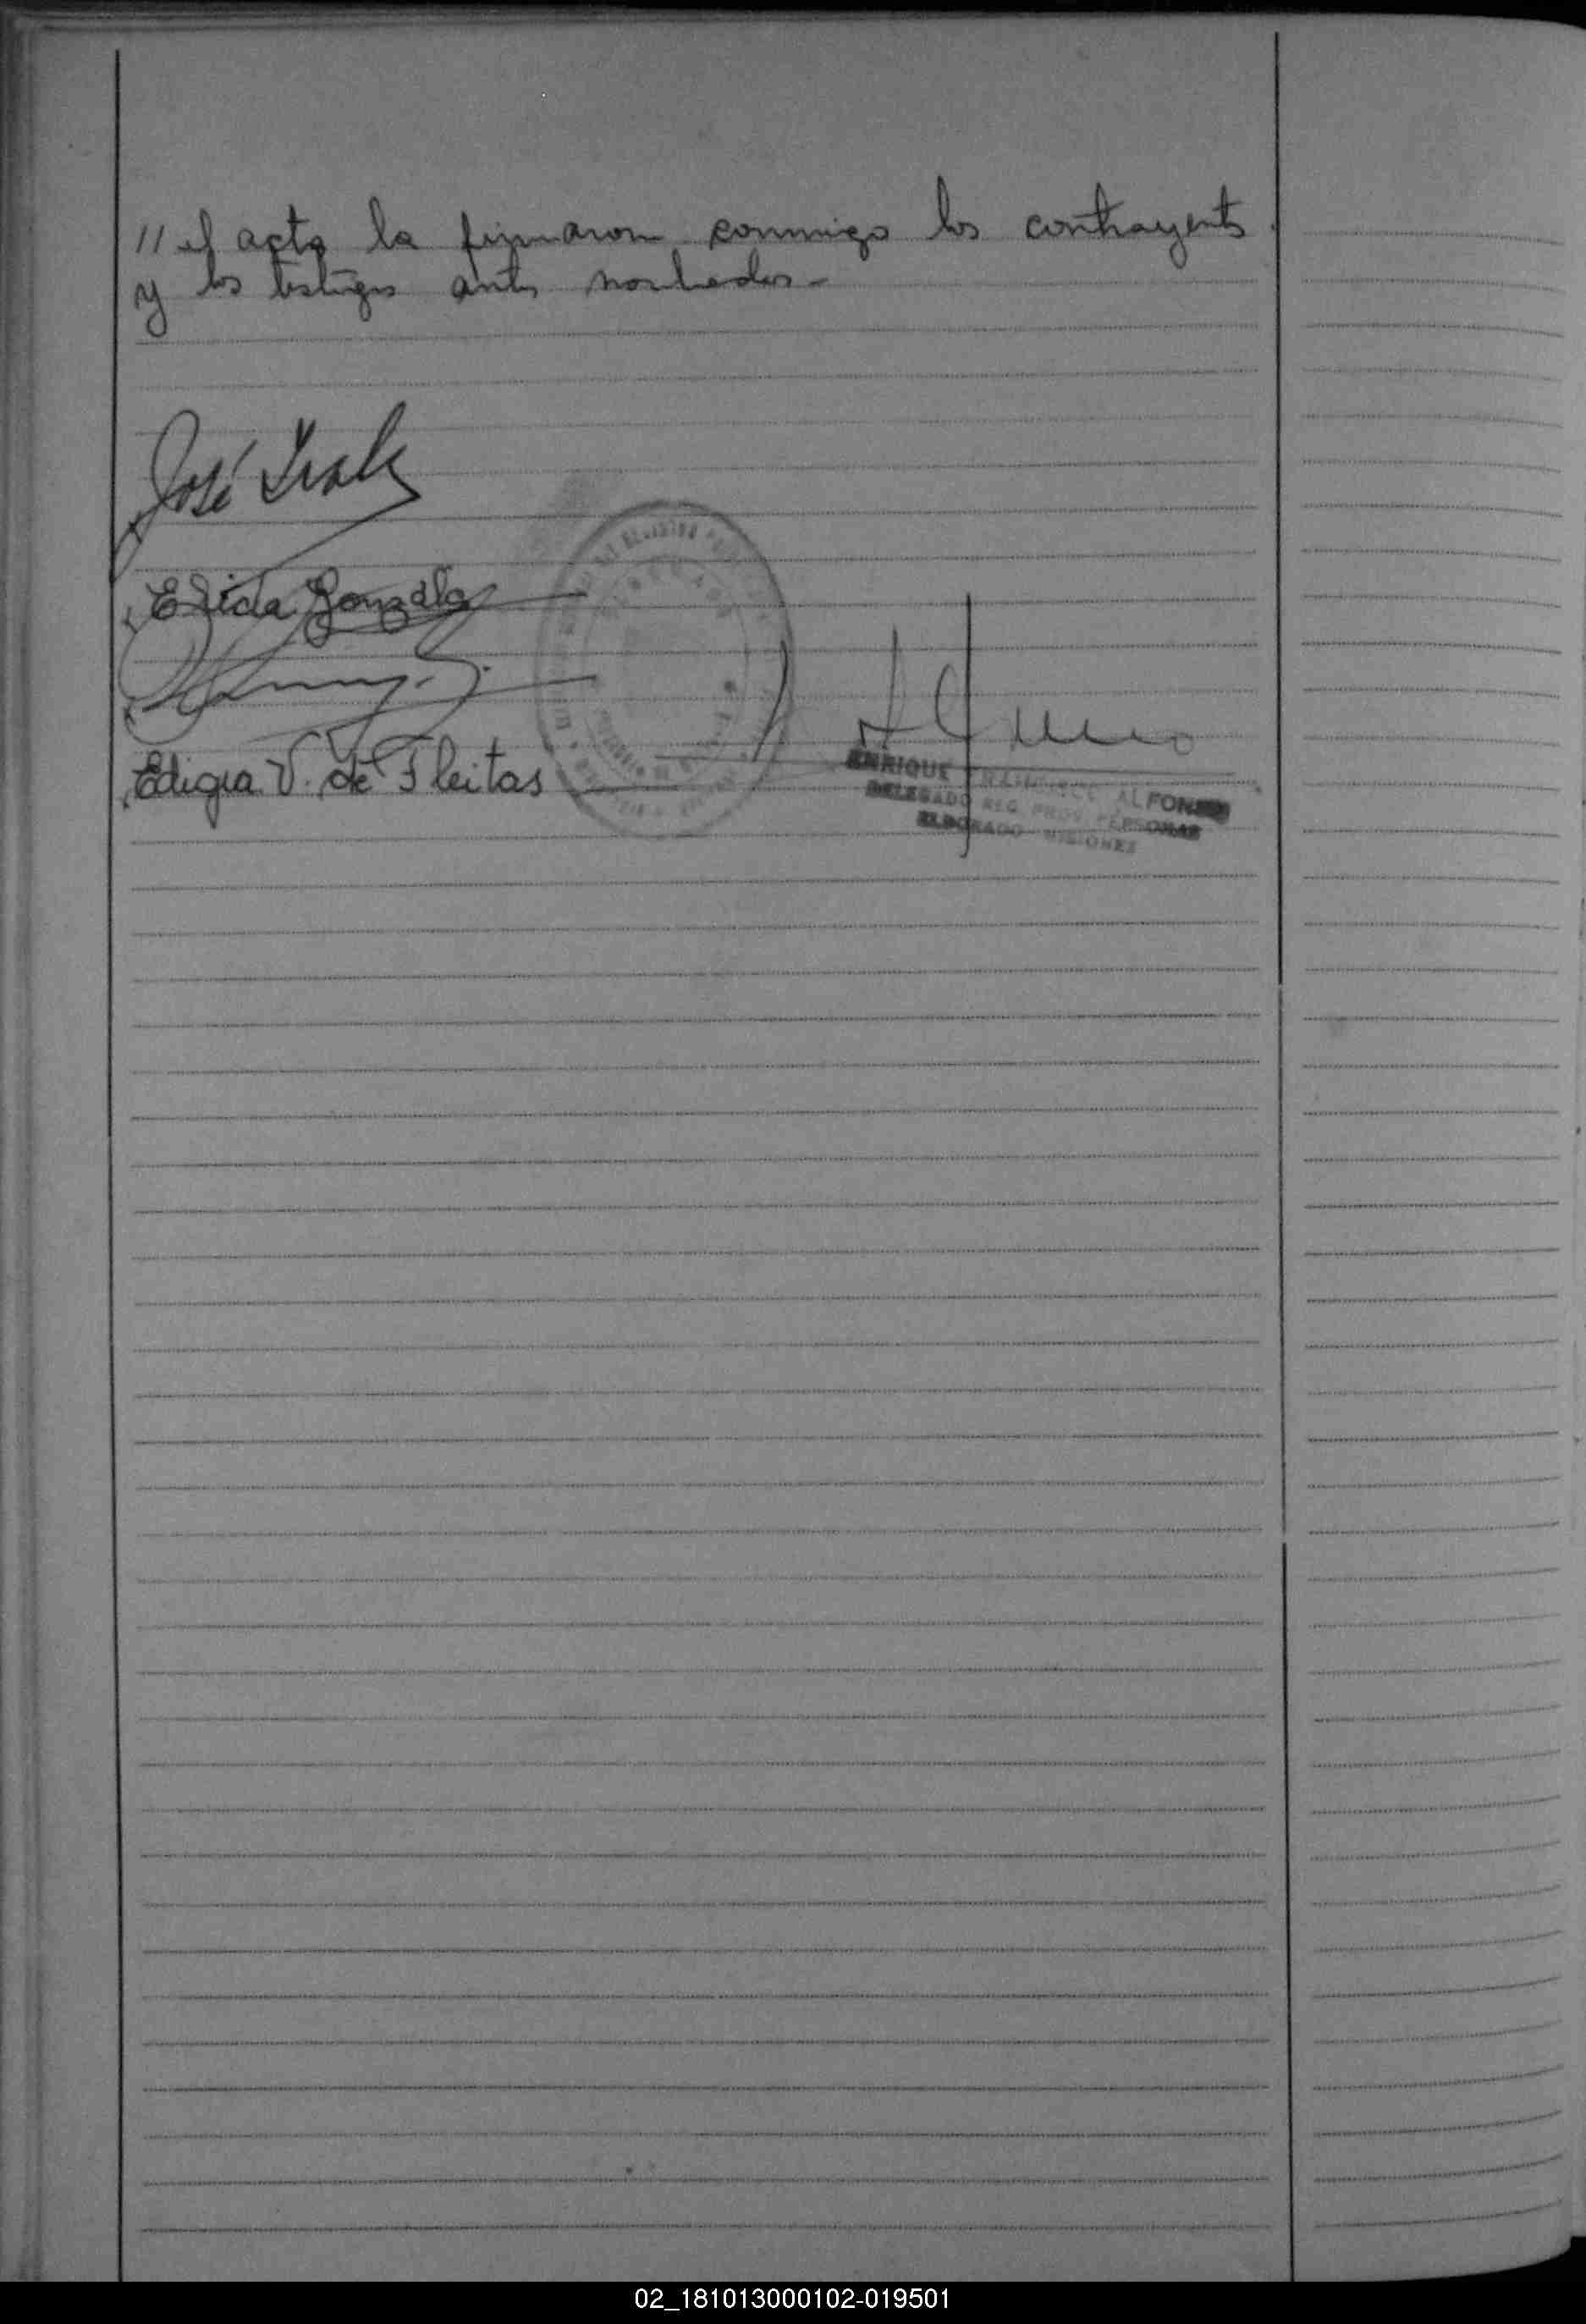 // el acta la firmaron conmigo los contrayents
y los testigos antes nombrados -
José
Elida Gonzalez
Edigia V. de Fleitas
ENRIQUE FRANCISCO ALFONSO
DELEGADO REG. PROV. PERSONAS
ELDORADO MISIONES
02_181013000102-019501